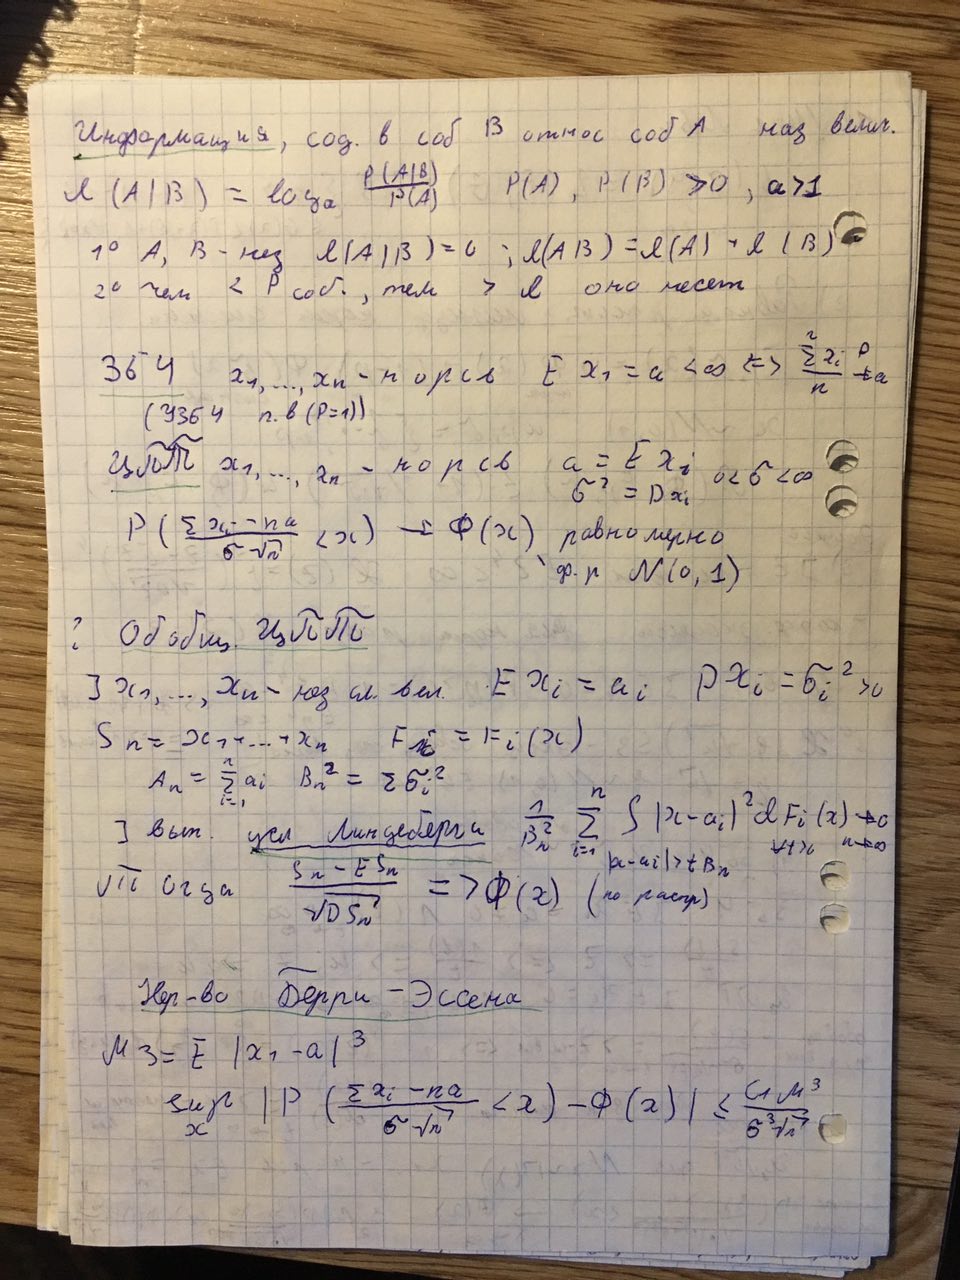 Информация, сод. в соб B относ соб A наз велич.
I (A|B) = log_a P(A|B)/P(A) P(A), P(B) > 0, a>1
1° A, B - нез I(A|B)=0 ; I(AB) = I(A) + I(B)
2° чем < P соб., тем > I оно несет
ЗБЧ x₁,...,xₙ - норсв E x₁ = a < ∞ <=> Σⁿ xᵢ / n →ᴾ a
(УЗБЧ п.в (P=1))
ЦПТ x₁,...,xₙ - норсв a = E xᵢ 0<σ<∞
σ² = Dxᵢ
P( (Σxᵢ - na)/(σ√n) < x) → Φ(x) равномерно
ф.р N(0,1)
? Обобщ. ЦПТ
] x₁,...,xₙ - нез сл. вел. E xᵢ = aᵢ Dxᵢ = σᵢ² >0
Sₙ = x₁+...+xₙ F = Fᵢ(x)
Aₙ = Σⁿᵢ₌₁ aᵢ Bₙ² = Σσᵢ²
] вып. усл Линдеберга 1/Bₙ² Σⁿᵢ₌₁ ∫ |x-aᵢ|² dFᵢ(x) → 0
|x-aᵢ|>tBₙ ∀t>0 n→∞
Тогда (Sₙ - ESₙ)/√DSₙ => Φ(x) (по распр)
Нер-во Берри-Эссена
M3 = E |x₁ - a|³
sup_x |P( (Σxᵢ - na)/(σ√n) < x) - Φ(x)| ≤ C₁M³/(σ³√n)